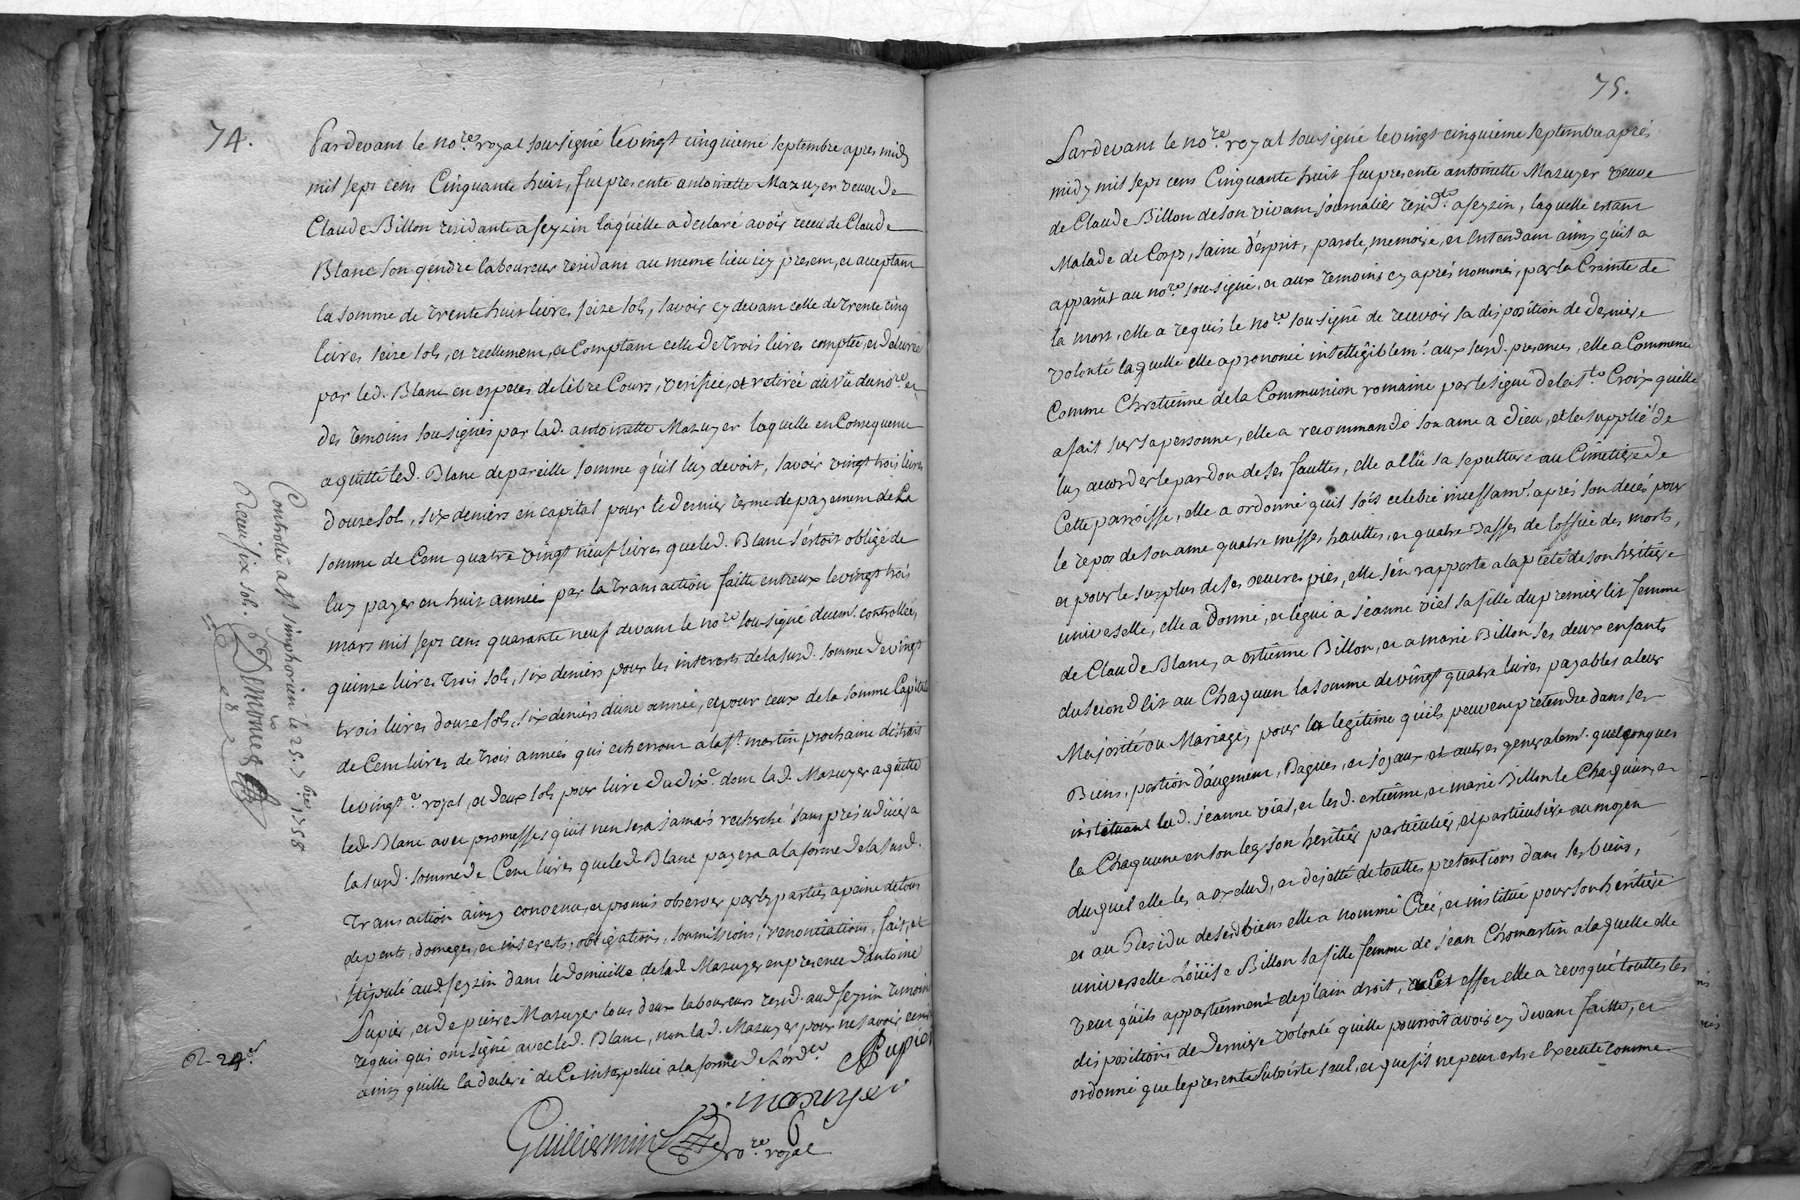 74.
Pardevant le no.re royal sousigné le vingt cinquieme septembre apres midy
mil sept cens Cinquante huit, fut presente antoinette Mazuyer veuve de
Claude Billon residante a feyzin laquelle a declaré avoir receu de Claude
Blanc son gendre laboureur residant au meme lieu icy present, et acceptant
la somme de trente huit livres seize sols, savoir cy devant celle de trente cinq
livres seize sols, et reellement, et Comptant celle de trois livres comptée, et delivrée
par led. Blanc en especes de libre Cours, verifiée, et retirée au vû du no.re et
des temoins sousignés par lad. antoinette Mazuyer laquelle en Consequence
a quitté led. Blanc de pareille somme qu'il luy devoit, savoir vingt trois livres
douze sols, six deniers en capital pour le dernier terme de payement de La
somme de Cent quatre vingt neuf livres que led. Blanc s'étoit obligé de
luy payer en huit année par la transaction faitte entreux le vingt trois
mars mil sept cens quarante neuf devant le no.re sousigné duem.t controllée,
quinze livres trois sols, six deniers pour les interests de la susd. somme de vingt
trois livres douze sols, six deniers d'une année, et pour ceux de la somme Capitale
de Cent livres de trois années qui echerront a la st. martin prochaine distrait
le vingt.e royal, et deux sols pour livre du dix.e dont lad. Mazuyer a quitté
led. Blanc avec promesses qu'il n'en sera jamais recherché sans prejudicier a
la susd. somme de Cent livres que led. Blanc payera a la forme de la susd.
Transaction ainsy convenu, et promis observer par les parties a peine de tous
depents, domages, et interests, obligations, soumissions, renonciations, fait, et
stipulé aud. feyzin dans le domicille de lad. Mazuyer en presence d'antoine
Pupier, et de pierre Mazuyer tous deux laboureurs resid. aud. feyzin temoins
requis qui ont signé avec led. Blanc, non lad. Mazuyer pour ne savoir ecrire
ainsy quelle la declaré de Ce interpellée a la forme de L'ord.ce
APupier
p. mazuyer
Guilliermin no.re royal
Controllé a st simphorien le 25. 7bre 1758
Receu six sols.
R. 24.s
75.
Pardevant le no.re royal sousigné le vingt cinquieme septembre aprés
midy mil sept cens Cinquante huit fut presente antoinette Mazuyer veuve
de Claude Billon de son vivant journalier resid.t a feyzin, laquelle estant
Malade de Corps, saine d'esprit, parole, memoire, et Entendant ainsy qu'il a
apparût au no.re sousigné, et aux temoins cy aprés nommés, par la Crainte de
la mort, elle a requis le no.re sousigné de recevoir sa disposition de derniere
volonté laquelle elle a prononcé intelligiblem.t aux susd. presences, elle a Commencé
Comme Chretienne de la Communion romaine par le signe de la s.te Croix quelle
a fait sur sa personne, elle a recommandé son ame a Dieu, et le supplié de
luy accorder le pardon de ses fauttes, elle a Elû sa sepulture au Cimetiere de
Cette parroisse, elle a ordonné qu'il soit celebré incessam.t aprés son decés pour
le repos de son ame quatre messes hauttes, et quatre basses de l'office des morts,
et pour le surplus de ses oeuvres pies, elle s'en rapporte a la pieté de son heritiere
universelle, elle a donné, et legué a jeanne vial sa fille du premier lit femme
de Claude Blanc, a estienne Billon, et a marie Billon ses deux enfants
du second lit au Chaquun la somme de vingt quatre livres payables a leur
Majorité ou Mariage, pour la legitime qu'ils peuvent pretendre dans ses
Biens, portion d'augment, Bagues, et joyaux et autres generalem.t quelconques
instituant lad. jeanne vial, et lesd. estienne, et marie Billon le Chaquun, et
la Chaquune en son leg son heritier particulier, et particuliere au moyen
duquel elle les a exclud, et dejetté de touttes pretentions dans ses biens,
et au Residu de sesd. biens elle a nommé Creé, et institué pour son heritiere
universelle Loüise Billon sa fille femme de jean Chomartin a laquelle elle
veut qu'ils appartiennent de plain droit, a Cet effet elle a revoqué touttes les
dispositions de derniere volonté quelle pourroit avoir cy devant faitte, et
ordonné que le present subsiste seul, et que s'il ne peut estre Executé comme